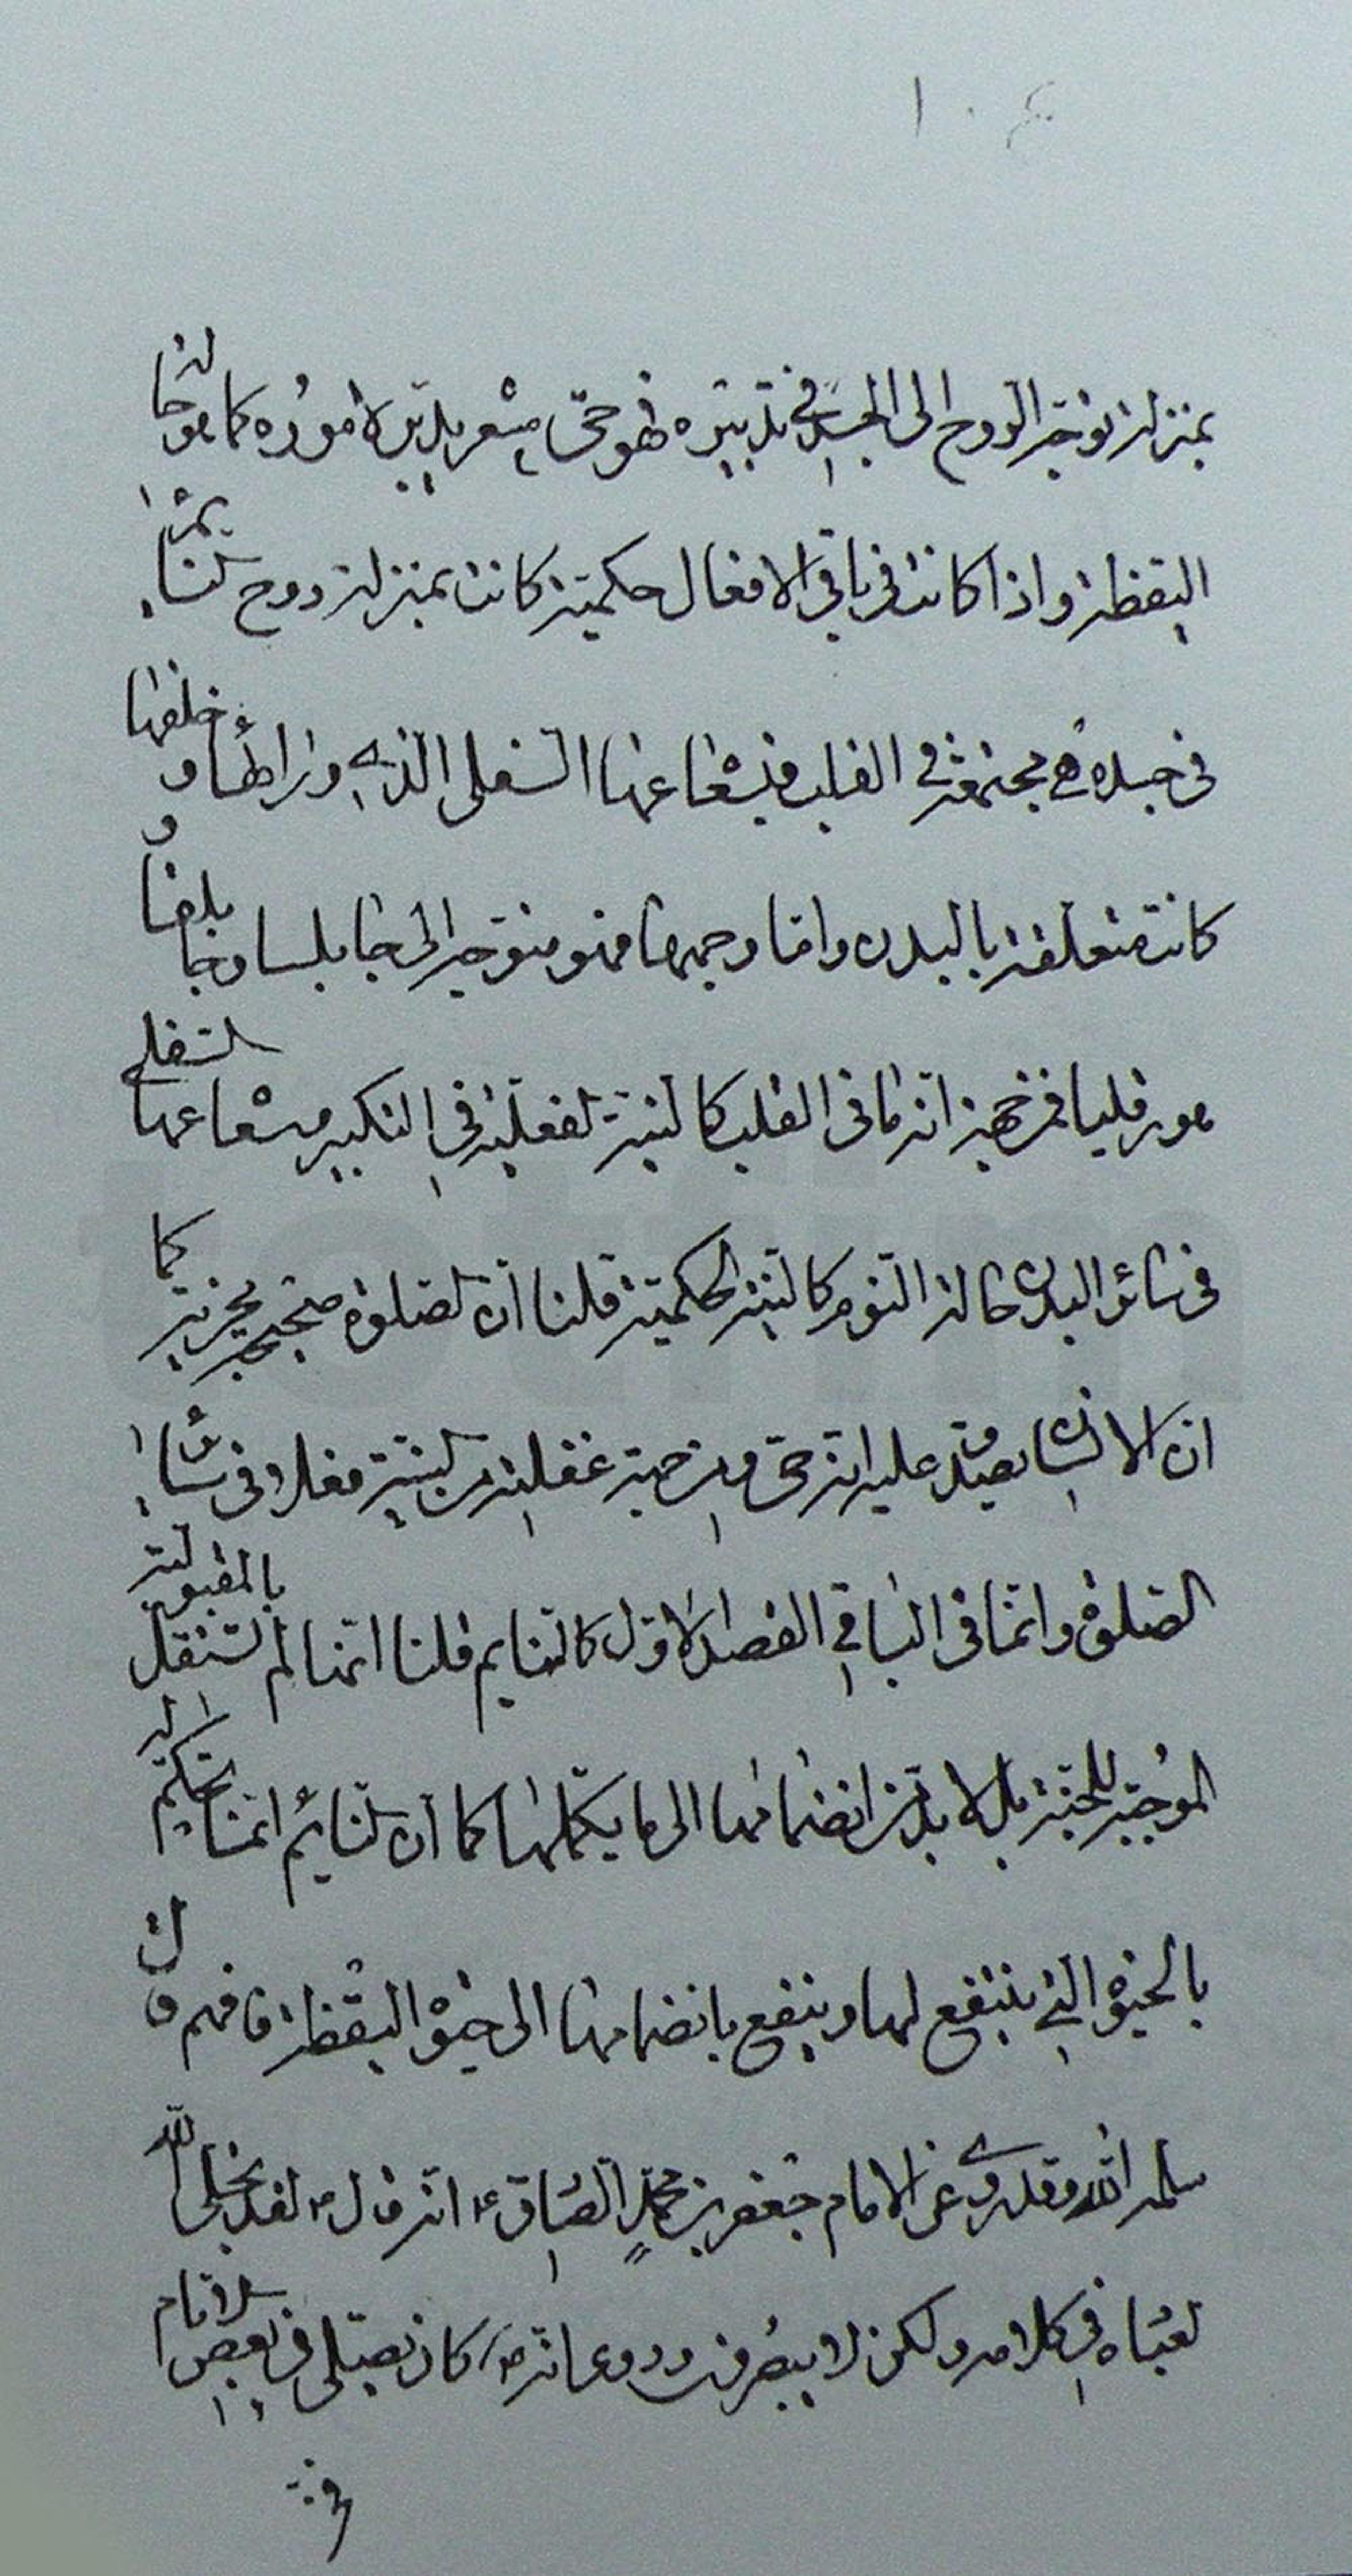 بمنزلة توجه الروح الى الجسد فى تدبيره فهو حى مشعر بدبير لاموره كما هو حالة
اليقظة واذا كانت فى باقى الافعال حكمية كانت بمنزلة روح النائم
فى جسده هى مجتمعة فى القلب فيشعاعها السفلى الذى من ورائها و خلفها
كانت متعلقة بالبدن واما وجهها فهو متوجه الى جابلسا وجابلقا و
هورقليا فمن جهة انها فى القلب كالنية الفعلية فى التكبير وشعاعها السفلى
فى سائر البدن حالة النوم كالنية الحكمية قلنا ان الصلوة صحيحة مجزية كما
ان الانسان يصدق عليه انه حى ومن جهة غفلته من النية فعلا فى سائر
الصلوة وانها فى الباقى الفصل الاول كالنايم قلنا انها لم تستقل بالمقبولية
الموجبة للجنة بل لا بد من انضمامها الى ما يكملها كما ان النائم انما تحكم له
بالحيوة التى ينتفع لها وينتفع بانضمامها الى حيوة اليقظة فافهم قال
سلمه الله وقد روى عن الامام جعفر بن محمد الصادق ع انه قال لقد تجلى الله
لعباده فى كلامه ولكن لا يبصرون وروى انه كان يصلى فى بعض الايام